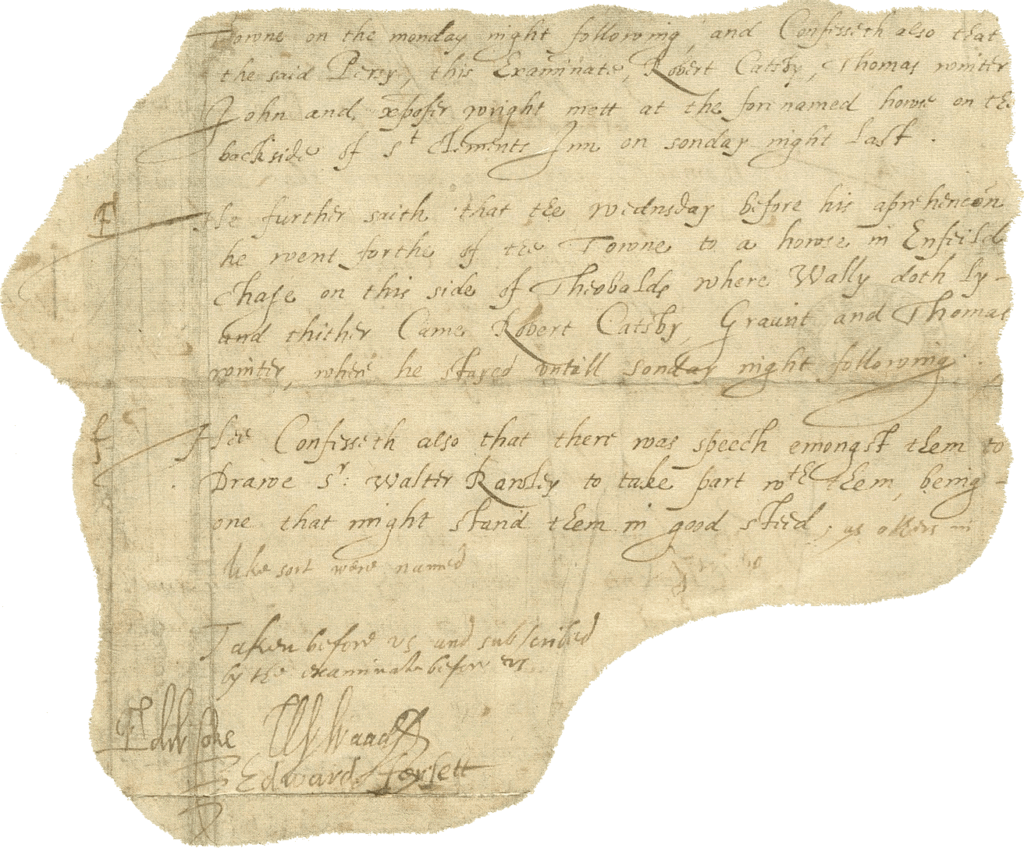 Towne on the monday night following, and Confesseth also that
the said Percy, this Examinate, Robert Catsby, Thomas winter
John and xpofer wright mett at the forenamed howse on the
backside of St Clements Inn on sonday night last.
F He further saith that the wednsday before his aprehencon
he went forthe of the Towne to a howse in Enfeild
chase on this side of Theobalds where Wally doth ly-
and thither Came Robert Catsby, Graunt and Thomas
winter, where he stayed untill sonday night following.
f Hee Confesseth also that there was speech emongst them to
Drawe Sr: Walter Rawley to take part wth them, being-
one that might stand them in good steed; as others in
like sort were named
Guido
Taken before us and subscribed
by the examinate before us
Edw Coke W Waad
Edward Forsett